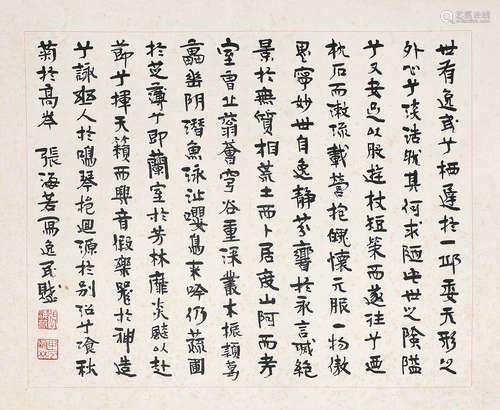 世有逸民兮栖遲於一邱委天形之
外心兮淡浩然其何求陋此世之險隘
兮又安足以般遊杖短策而遂往兮迺
枕石而漱流載營抱魄懷元服一物傲
思寧妙世自逸靜芬響於永言滅絕
景於無質相荒土而卜居度山阿而考
室曾丘翳薈穹谷重深叢木振穎葛
藟垂阴潛魚泳沚嚶鳥來吟仍蔬圃
於芝薄兮即蘭室於芳林靡炎飈以赴
節兮揮天籟而興音假樂器於神造
兮詠幽人於鳴琴挹迴源於別沼兮飡秋
菊於高岑 張海若寫逸民賦